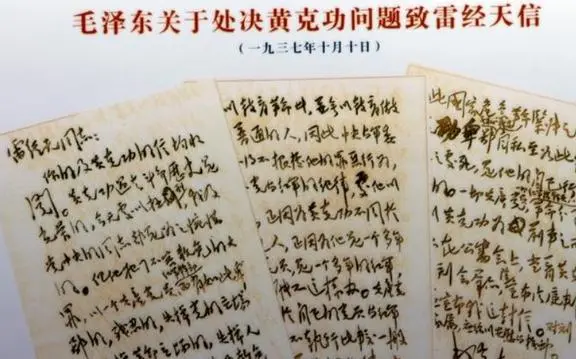 毛泽东关于处决黄克功问题致雷经天信
(一九三七年十月十日)
雷经天同志：
你的及黄克功的信均收
阅。黄克功过去斗争历史是
光荣的，今天处以极刑，我及
党中央的同志都是为之惋惜
的。但他犯了不容赦免的大
罪，以一个共产党员红军干
部而有如此卑
鄙的，残忍的，失掉党的立场
的，失掉革命立场的，失掉人
以教育革命者，并无以教育做
普通的人，因此中央与军委
不根据他的罪恶行为，
党与红军的纪律，处他以
正因为黄克功不同于
人，正因为他是一个多年
党员，是一个多年的红军
能不这样办。共产党
不执行比较一般
此国家危急革命紧张之
鄙无耻残忍自私至如此
处死，是他的自己行
一切共产党员
黄克功为前车之
在公审会上，当着黄克
到会群众，除宣布法庭判
宣布我这封信。对刘